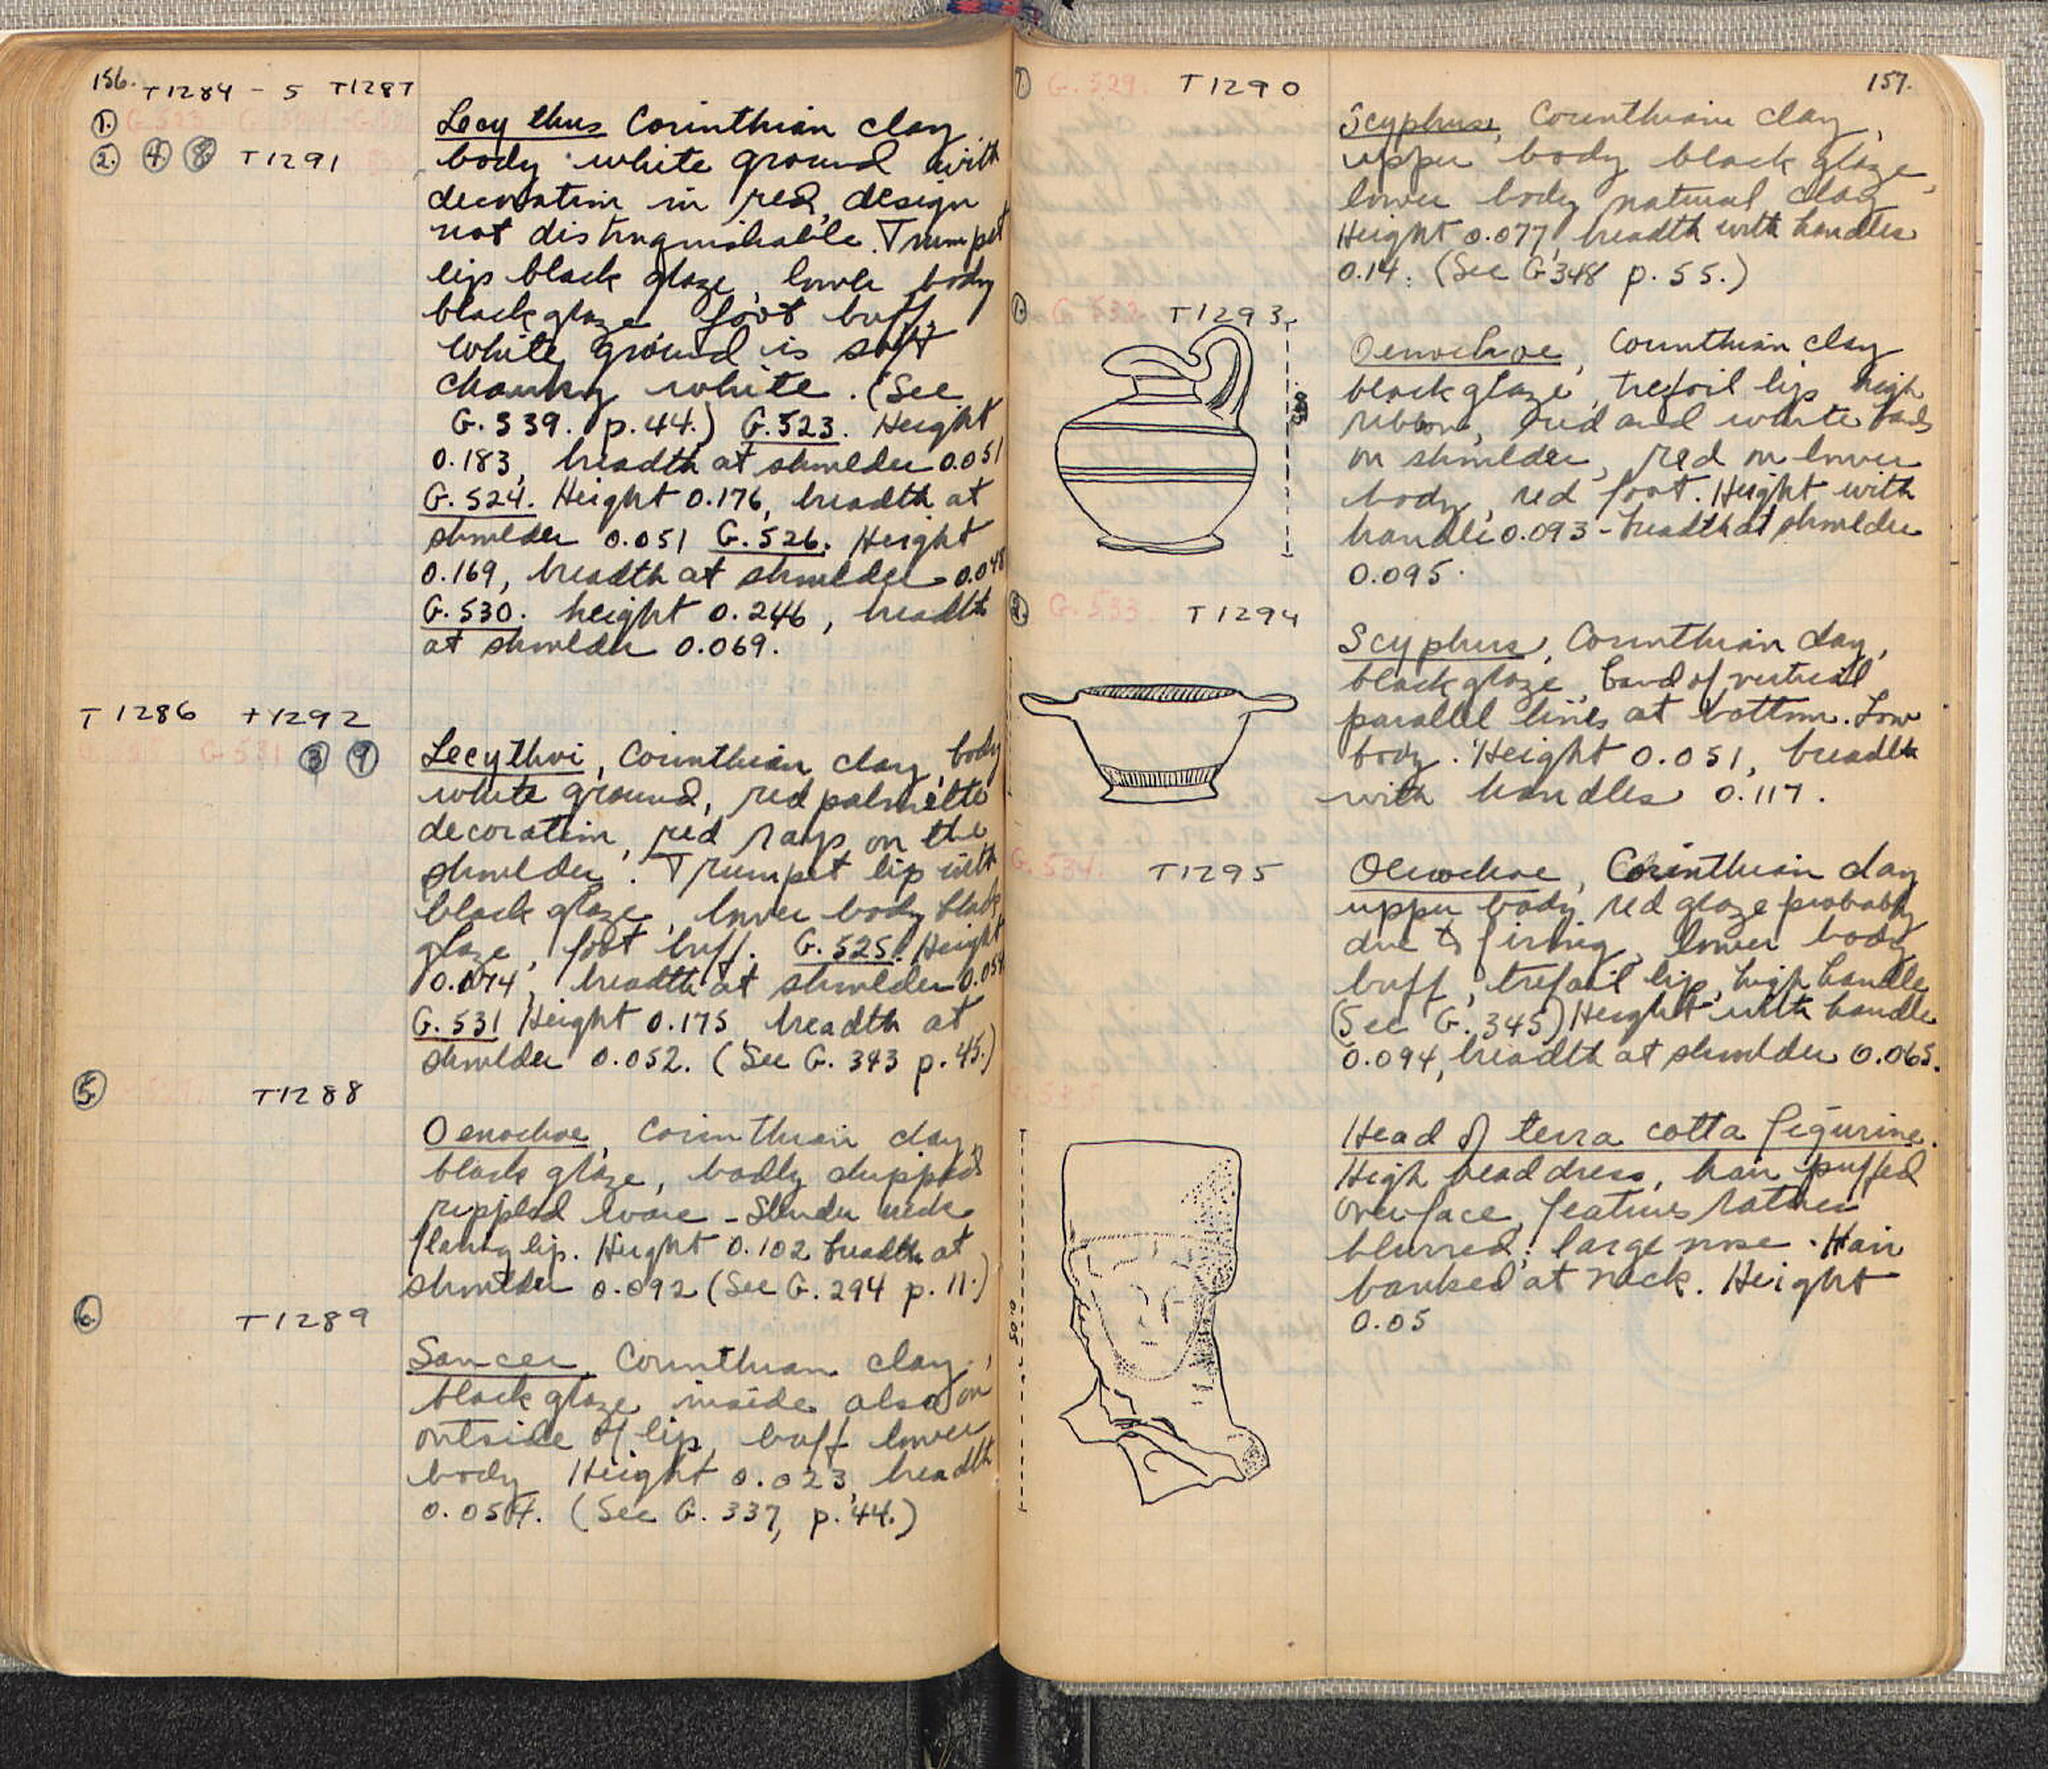 156. T1284 - 5 T1287
① G.523
② ④ ⑧ T1291
Lecythus Corinthian clay
body white ground with
decoration in red, design
not distinguishable. Trumpet
lip black glaze, lower body
black glaze, foot buff.
White ground is soft
chalky white. (See
G.339. p.44.) G.523. Height
0.183, breadth at shoulder 0.051
G.524. Height 0.176, breadth at
shoulder 0.051 G.526. Height
0.169, breadth at shoulder 0.048
G.530. height 0.246, breadth
at shoulder 0.069.
T1286 + T1292
G.531 ③ ⑨
Lecythoi, Corinthian clay, body
white ground, red palmette
decoration, red rays on the
shoulder. Trumpet lip with
black glaze, lower body black
glaze, foot buff. G.525. Height
0.174, breadth at shoulder 0.054
G.531 Height 0.175, breadth at
shoulder 0.052. (See G. 343 p.45.)
⑤ T1288
Oenochoe, Corinthian clay,
black glaze, badly chipped
rippled ware - Slender neck
flaring lip. Height 0.102 breadth at
shoulder 0.092 (See G. 294 p. 11.)
⑥ T1289
Saucer, Corinthian clay,
black glaze inside also on
outside of lip, buff lower
body Height 0.023, breadth
0.054. (See G. 337, p. 44.)
157.
⑦ G.529. T1290
Scyphus, Corinthian clay,
upper body black glaze,
lower body natural clay
Height 0.077, breadth with handles
0.14. (See G348 p. 55.)
G.532 T1293
Oenochoe, Corinthian clay
black glaze, trefoil lip high
ribbon, red and white bands
on shoulder, red on lower
body, red foot. Height with
handle 0.093 - breadth at shoulder
0.095.
G.533 T1294
Scyphus, Corinthian clay,
black glaze, band of vertical
parallel lines at bottom. Low
body. Height 0.051, breadth
with handles 0.117.
G.534. T1295
Oenochoe, Corinthian clay
upper body red glaze probably
due to firing, lower body
buff, trefoil lip, high handle
(See G. 345) Height with handle
0.094, breadth at shoulder 0.065.
G.535
Head of terra cotta figurine.
High headdress, hair puffed
over face, features rather
blurred; large nose. Hair
banked at neck. Height
0.05
0.05